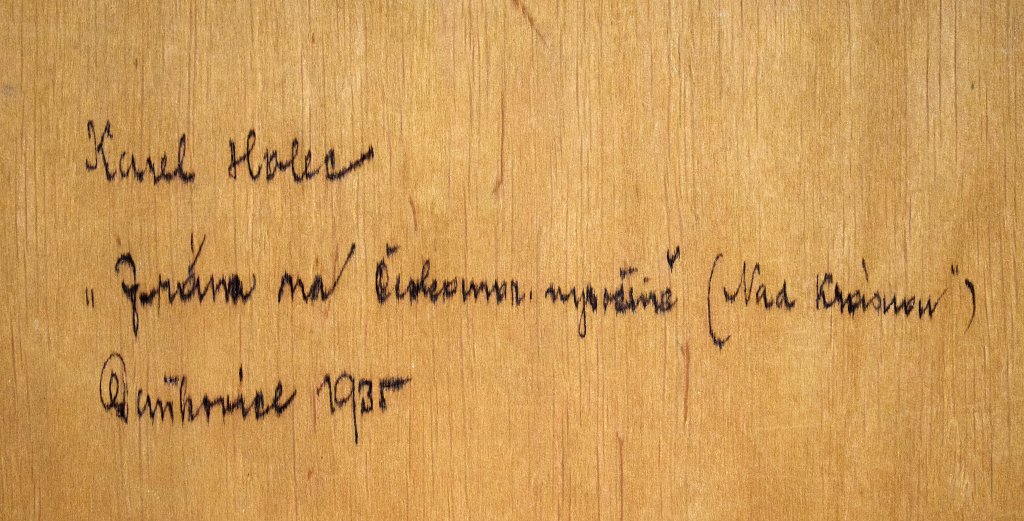 Karel Holec
„Zrána na Českomor. vysočině (Nad Krásnou")
Daňkovice 1935